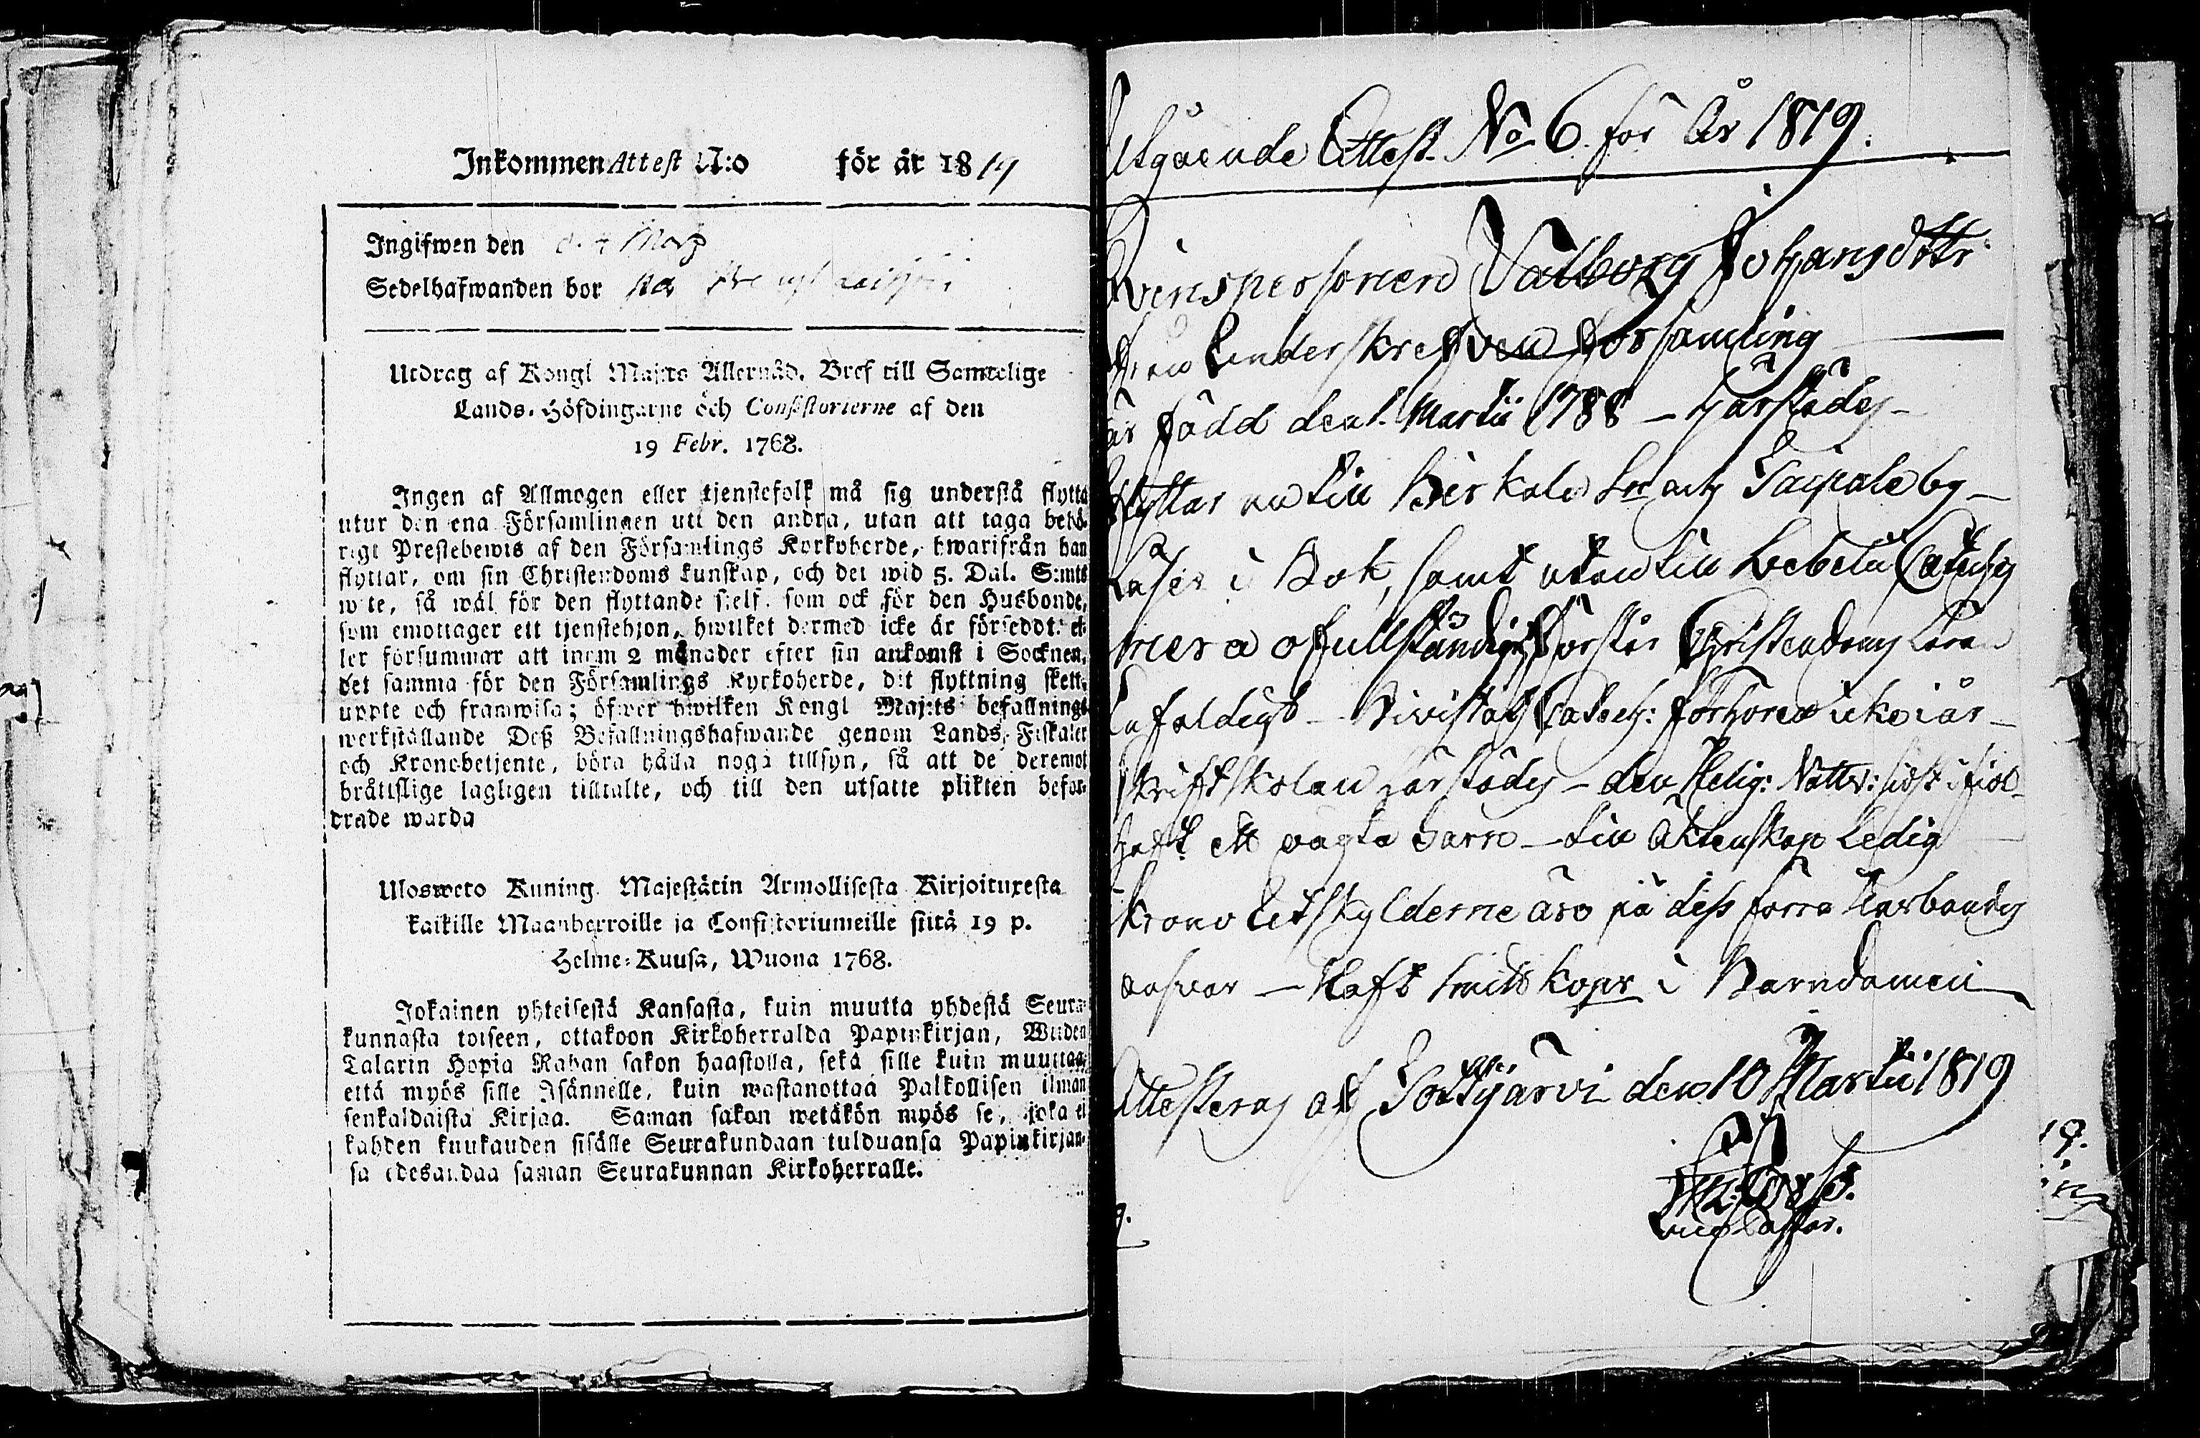 Inkommen Attest N:o för år 1819
Ingifwen den
Sedelhafwanden bor
Utdrag af Kongl Maj:ts Allernåd. Bref till Samtelige
Lands-Höfdingarne och Consistorierne af den
19 Febr. 1768.
Ingen af Allmogen eller tjenstefolk må sig understå flytta
utur den ena Församlingen uti den andra, utan att taga behö-
rigt Prestebewis af den Församlings Kyrkoherde, hwarifrån han
flyttar, om sin Christendoms kunskap, och det wid 5. Dal. S:mts
wite, så wäl för den flyttande sielf, som ock för den Husbonde,
som emottager ett tjenstehjon, hwilket dermed icke är försedt, el-
ler försummar att inom 2 månader efter sin ankomst i Socknen,
det samma för den Församlings Kyrkoherde, dit flyttning skett,
uppte och framwisa; öfwer hwilken Kongl Maj:ts befallnings
werkställande Deß Befallningshafwande genom Lands-Fiskaler
och Kronobetjente, böra hålla noga tillsyn, så att de deremot
bråttslige lagligen tilltalte, och till den utsatte plikten befor-
drade warda
Ulosweto Kuning. Majestätin Armollisesta Kirjoituxesta
kaikille Maanherroille ja Consistoriumeille siitä 19 p.
Helme-Kuusa, Wuona 1768.
Jokainen yhteisestä Kansasta, kuin muutta yhdestä Seura-
kunnasta toiseen, ottakoon Kirkoherralda Papinkirjan, Wiiden
Talarin Hopia Rahan sakon haastolla, sekä sille kuin muuttaa,
että myös sille Isännelle, kuin wastanottaa Palkollisen ilman
senkaldaista Kirjaa. Saman sakon wetäkön myös se, joka ei
kahden kuukauden sisälle Seurakundaan tulduansa Papinkirjan-
sa edesandaa saman Seurakunnan Kirkoherralle.
Utgående Attest No 6. för År 1819.
Qvinspersonen Valborg Johansdottr
från Underskrefven församling
är född den 1. Martii 1788 – härstädes –
flyttar nu till Birkala Soch Taipale by –
Läser i Bok, samt utan till Lebelii Catechs
mera ofullständigt förstår Christendoms Läran
Enfaldigt – Bivistat Catech: förhören icke i år –
Skriftskolan härstädes – den Helig: Nattv: sidst i fiol –
haft ett oägta barn – till Äktenskap Ledig
Krono Utskylderne äro på dess förra husbondes
ansvar – Haft smitt kopr i Barndomen
Attesteras af Tottijärvi den 10 Martii 1819
19.